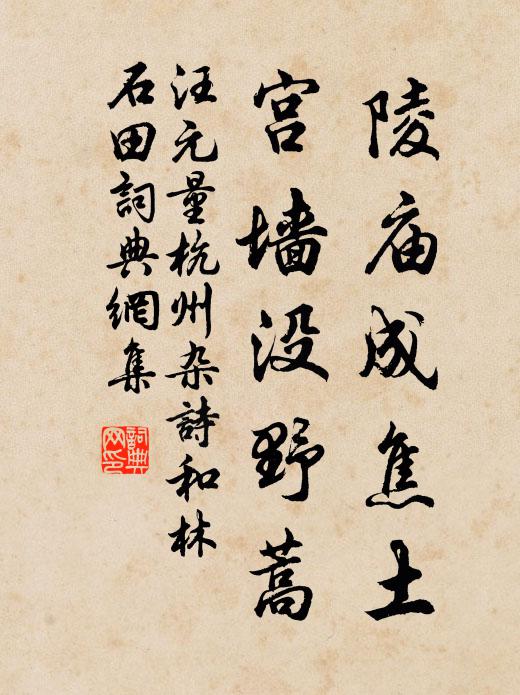 陵庙成焦土
宫墙没野蒿
汪元量杭州杂詩和林
石田詞典網集
詞典
网印